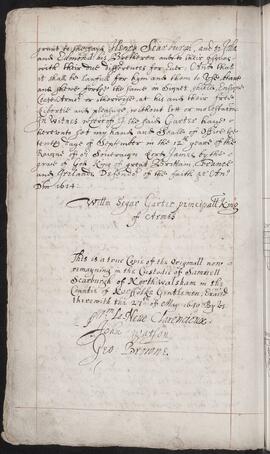 graunt to the said Henry Scarburgh, and to John
and Edmond his Bretheren and to their ofspring
with their due differences for Ever. And that
it shall be lawfull for hym and them to Use, beare
and shewe forth the same in Signet, shield, Ensigne
Coate Armor or otherwise at his and their free
liberty and pleasure without let or molestation
In witnes whereof I the said Garter have
hereunto set my hand and Seale of Office the
tenth daye of September in the 12th yeare of the
Raigne of our Souveraign Lord James by the
grace of God King of great Brittain France
and Ireland Defendor of the faith &c Ano
Dni 1614.
Willm Segar Garter principall King
of Armes
This is a true Copie of the Originall now
remayning in the Custodie of Samuell
Scarburgh of North walsham in the
Countie of Norffolk Gentleman, Examd
therewith the 21th of May 1650 By Us
Wm Le Neve Clarenceux
John Watson
Geo Browne.